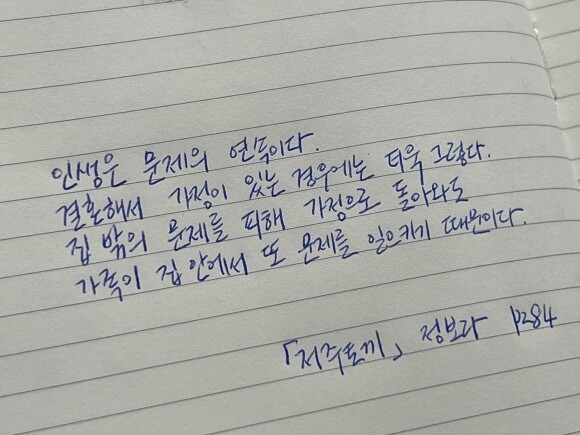 인생은 문제의 연속이다.
결혼해서 가정이 있는 경우에는 더욱 그렇다.
집 밖의 문제를 피해 가정으로 돌아와도
가족이 집 안에서 또 문제를 일으키기 때문이다.
「저주토끼」 정보라 p284